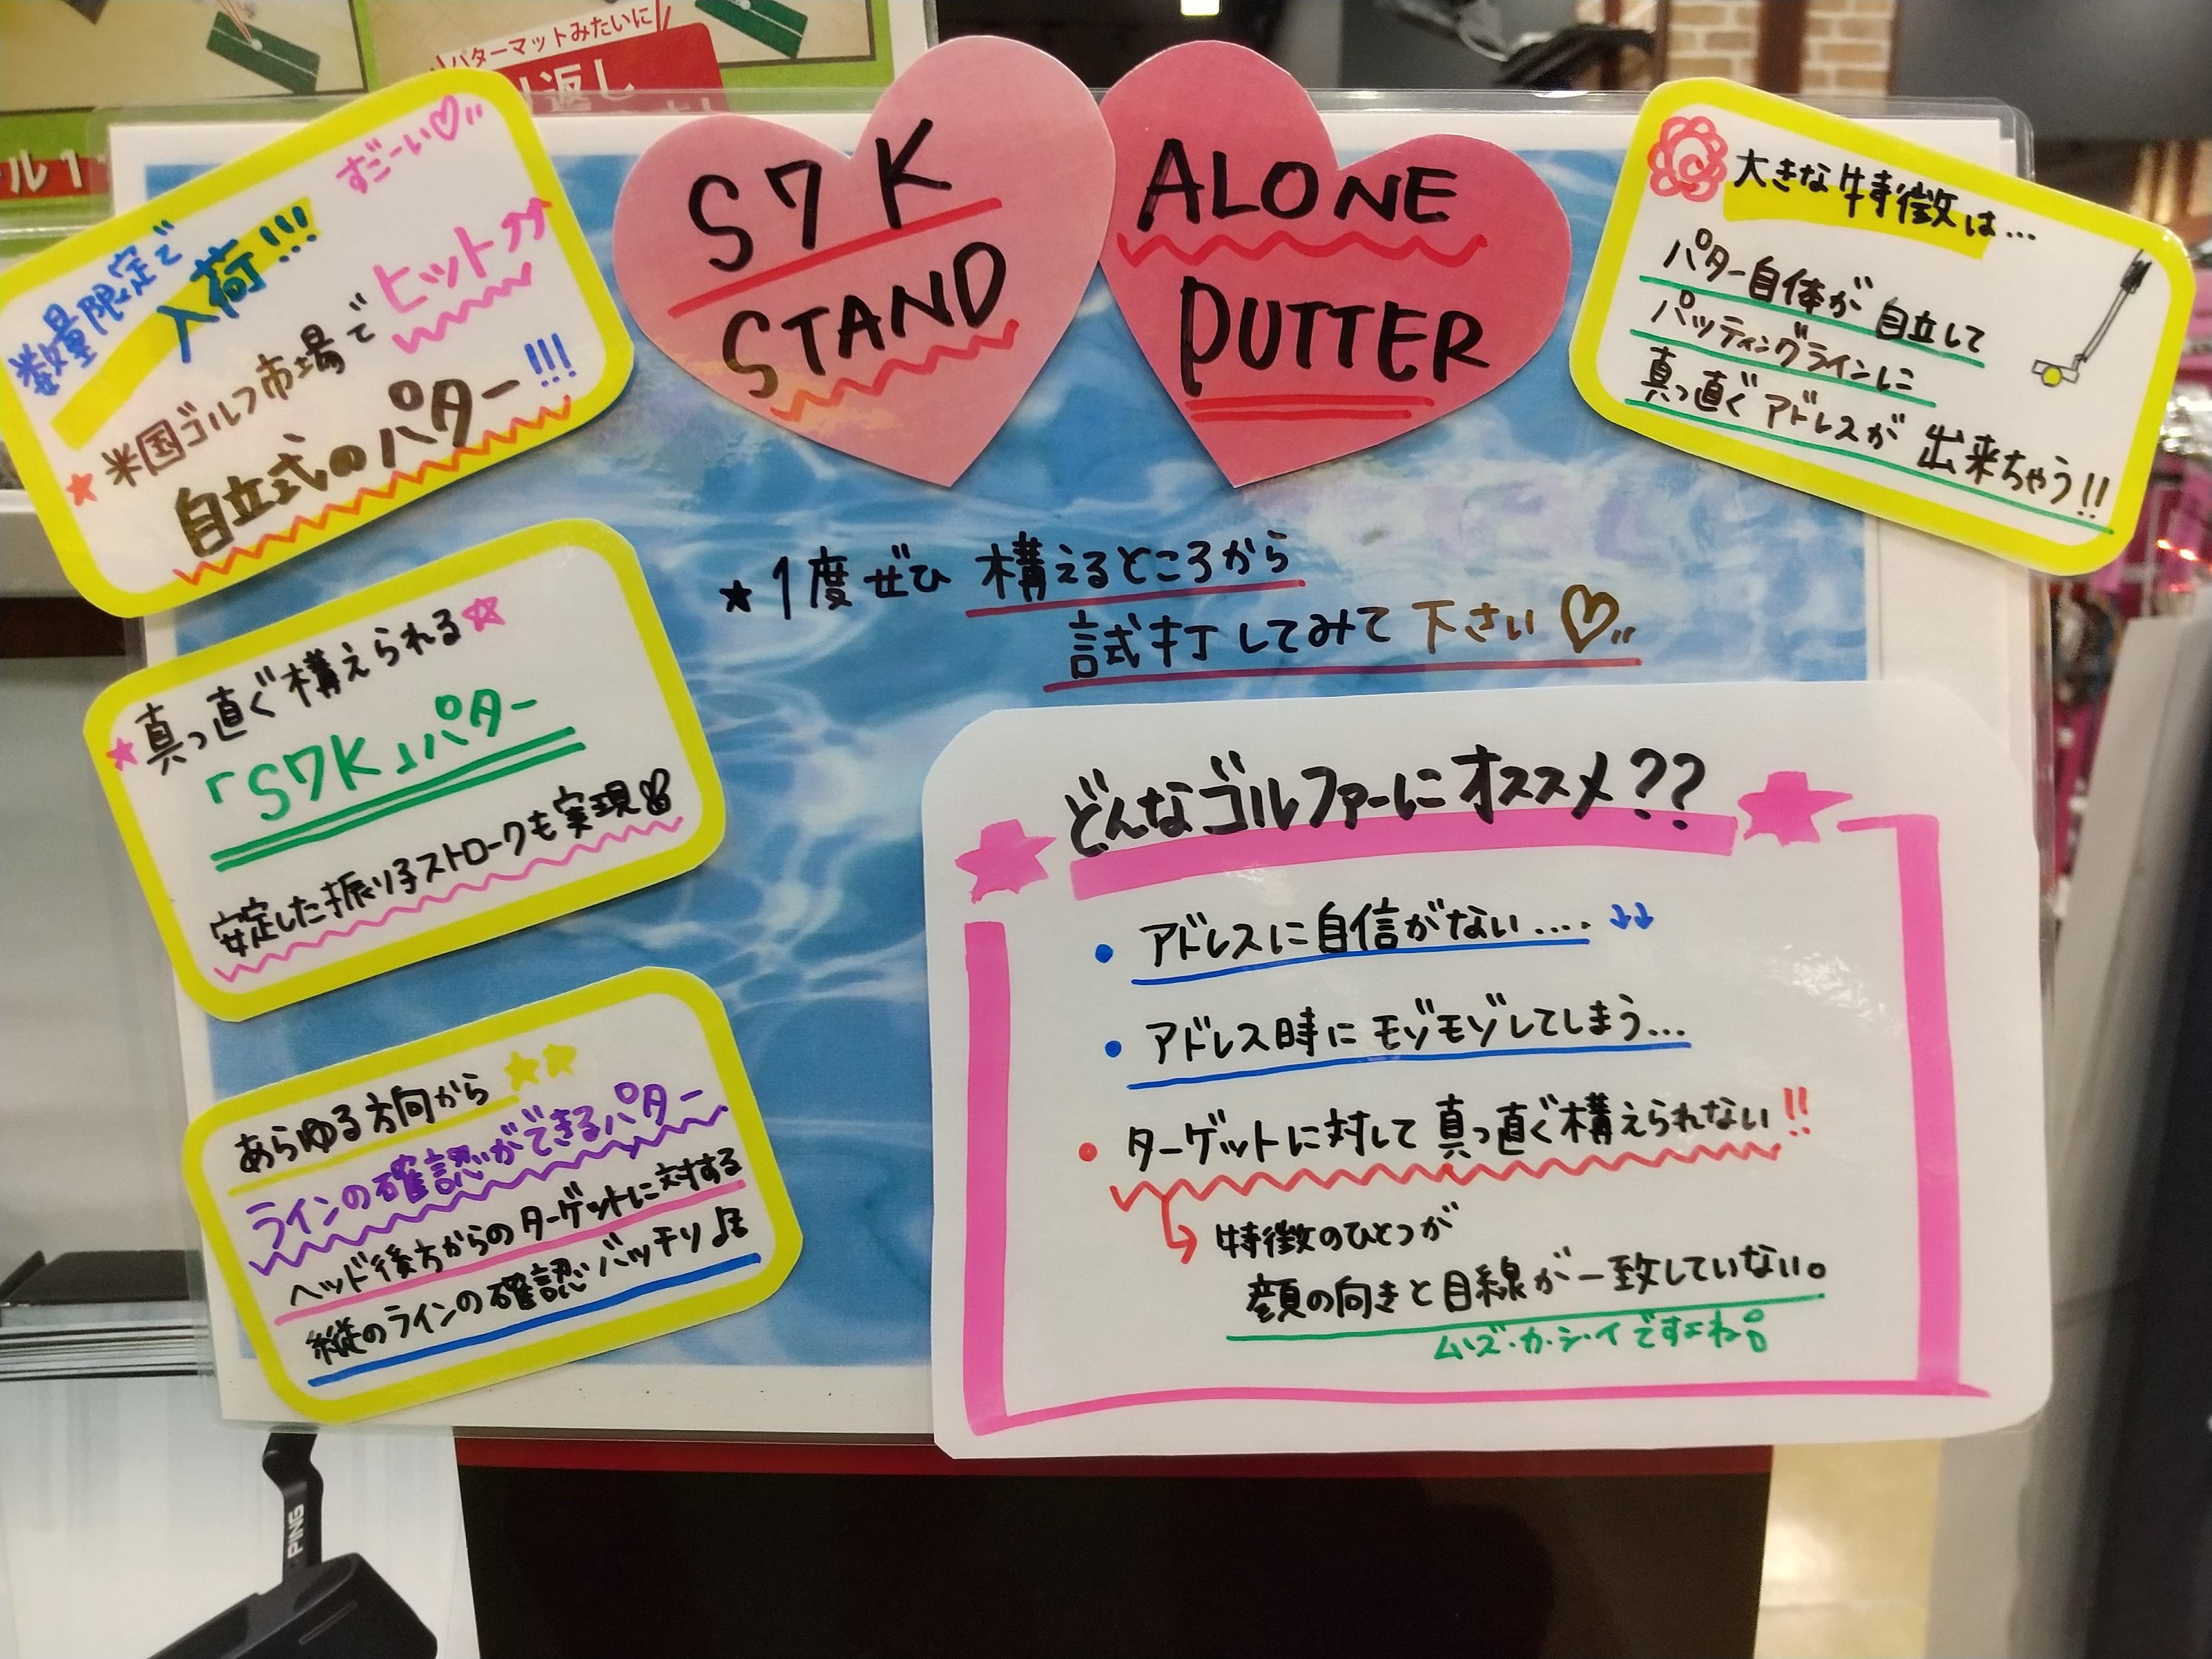 パターマットみたいに
り返し
ル1
S7K
STAND
ALONE
PUTTER
数量限定で
入荷!!!
すごーい♡
★米国ゴルフ市場でヒット↑↑
自立式のパター!!!
大きな特徴は...
パター自体が自立して
パッティングラインに
真っ直ぐアドレスが出来ちゃう!!
★1度ぜひ構えるところから
試打してみて下さい♡
★真っ直ぐ構えられる☆
「S7K」パター
安定した振り子ストロークも実現
あらゆる方向から★★
ラインの確認ができるパター
ヘッド後方からのターゲットに対する
縦のラインの確認バッチリ♪
★どんなゴルファーにオススメ??★
・アドレスに自信がない....↓↓
・アドレス時にモゾモゾしてしまう...
・ターゲットに対して真っ直ぐ構えられない!!
↳特徴のひとつが
顔の向きと目線が一致していない。
ム・ズ・カ・シ・イですよね。
PING